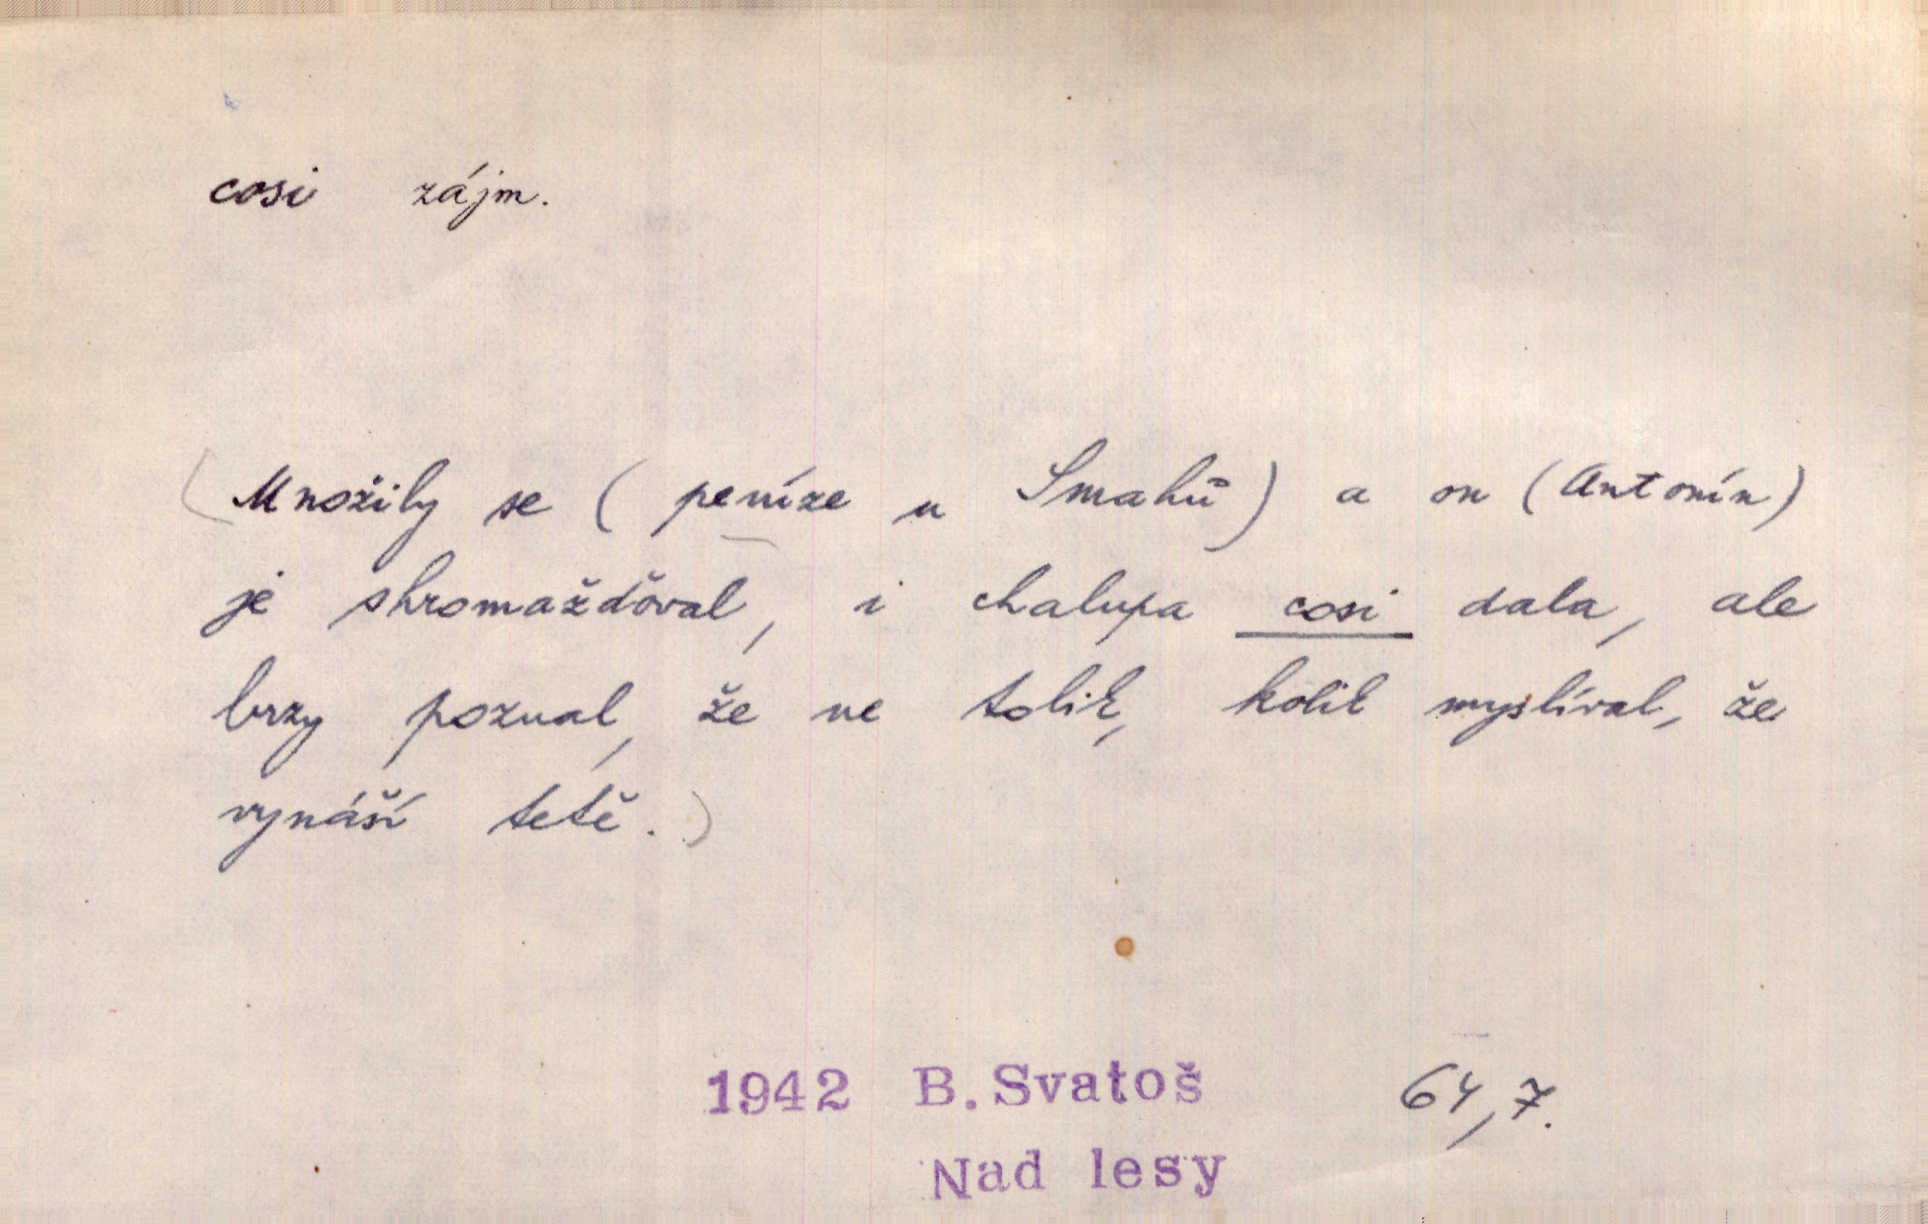 cosi zájm.
(Množily se (peníze u Smahů) a on (Antonín)
je shromažďoval, i chalupa cosi dala, ale
brzy poznal, že ne tolik, kolik myslíval, že
vynáší tetě.)
1942 B. Svatoš 64,7.
Nad lesy